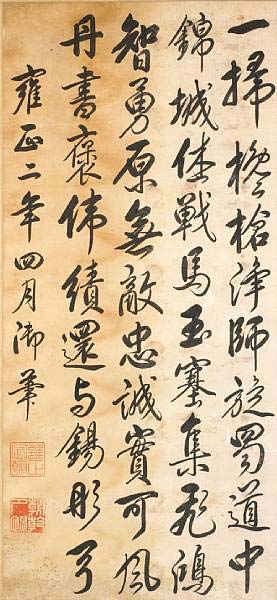 一掃欃槍淨師旋蜀道中
錦城休戰馬玉塞集飛鴻
智勇原無敵忠誠實可風
丹書褒偉績還與錫彤弓
雍正二年四月御筆